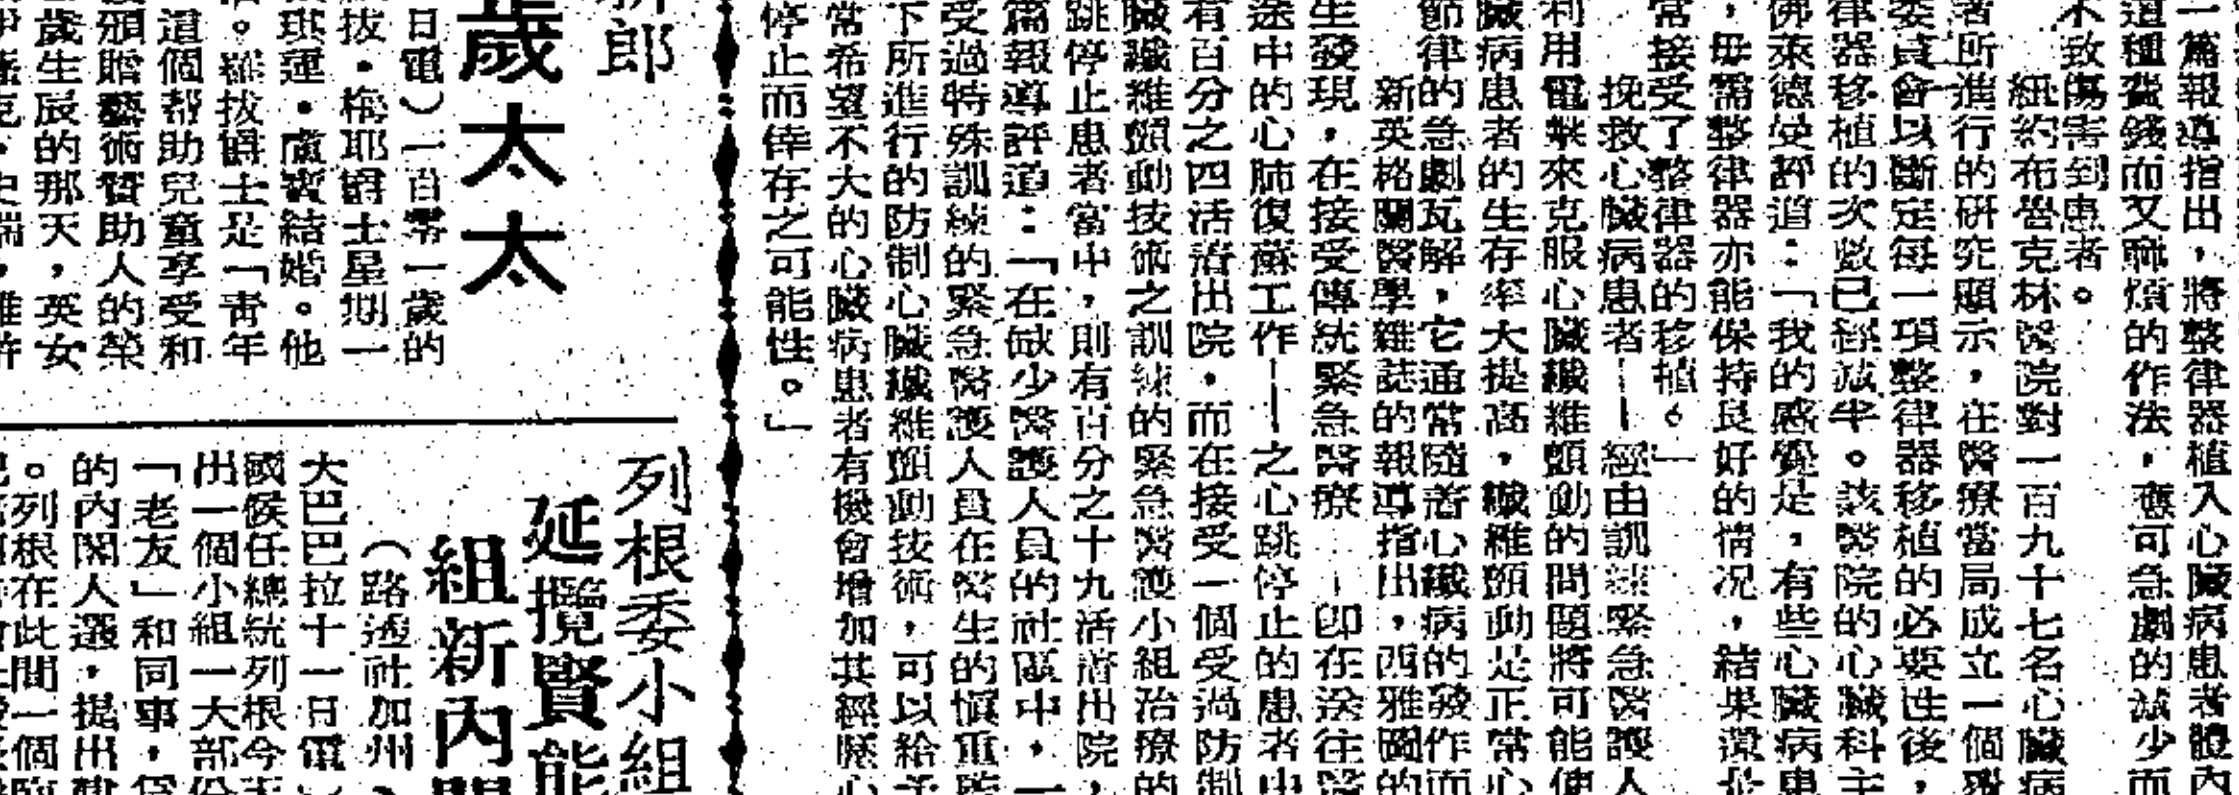 一篇報導指出，將整律器植入心臟病患者體內
這種費錢而又麻煩的作法，應可急劇的減少而
不致傷害到患者。
紐約布魯克林醫院對一百九十七名心臟病
者所進行的研究顯示，在醫療當局成立一個
委員會以斷定每一項整律器移植的必要性後，
律器移植的次數已經減半。該醫院的心臟科主
佛萊德曼評道：「我的感覺是，有些心臟病患
，毋需整律器亦能保持良好的情況，結果還是
常接受了整律器的移植。」
挽救心臟病患者——經由訓練緊急醫護人
利用電擊來克服心臟纖維顫動的問題將可能使
臟病患者的生存率大提高，纖維顫動是正常心
節律的急劇瓦解，它通常隨著心臟病的發作而
新英格蘭醫學雜誌的報導指出，西雅圖的
生發現，在接受傳統緊急醫療—即在送往醫
途中的心肺復蘇工作——之心跳停止的患者中
有百分之四活著出院，而在接受一個受過防制
臟纖維顫動技術之訓練的緊急醫護小組治療的
跳停止患者當中，則有百分之十九活著出院，
篇報導評道：「在缺少醫護人員的社區中，一
受過特殊訓練的緊急醫護人員在醫生的慎重監
下所進行的防制心臟纖維顫動技術，可以給予
常希望不大的心臟病患者有機會增加其經歷心
停止而倖存之可能性。」
郎
歲太太
日電）一百零一歲的
拔·梅耶爵士星期一
琪蓮·盧賓結婚。他
。羅拔爵士是「青年
這個幫助兒童享受和
頒贈藝術贊助人的榮
歲生辰的那天，英女
列根委小組
延攬賢能
組新內閣
（路透社加州
大巴巴拉十一日電）
國候任總統列根今天
出一個小組一大部份
「老友」和同事，為
的內閣人選，提出建
。列根在此間一個臨